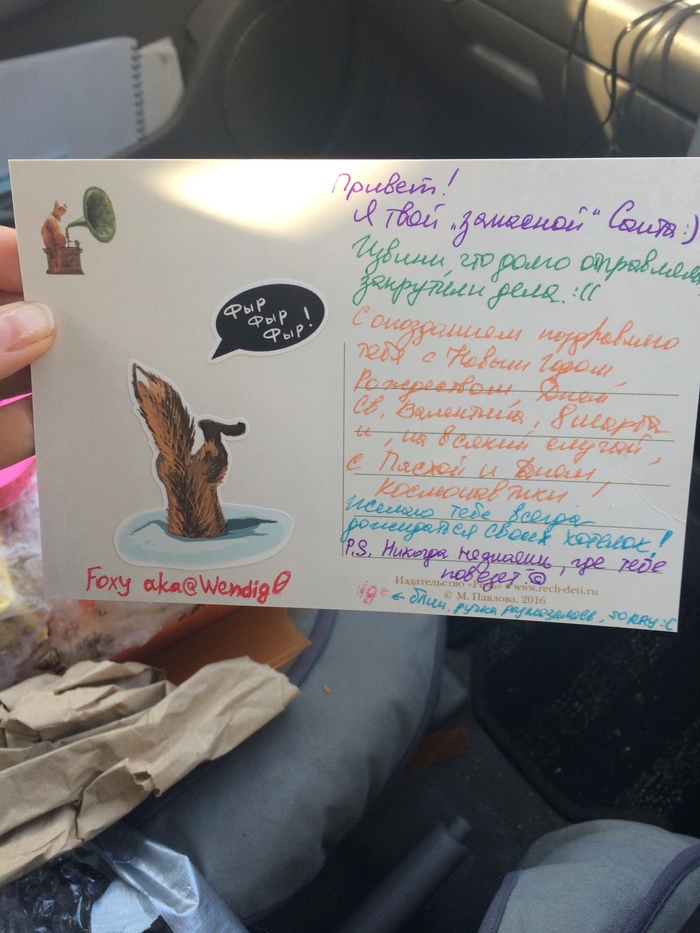 Привет!
Я твой „запасной“ Санта :)
Извини что долго отправлял
закрутили дела. :((
С опозданием поздравляю
тебя с Новым Годом,
Рождеством, Днем
Св. Валентина, 8 марта
и, на всякий случай,
с Пасхой и Днем
космонавтики!
Желаю тебе всегда
дожидаться своих хотелок!
P.S. Никогда не знаешь, где тебе
повезет
Фыр
Фыр
Фыр!
Foxy aka @Wendig0
Издательство «Речь» • www.rech-deti.ru
© М. Павлова, 2016
← блин, ручка размазалась, sorry :(